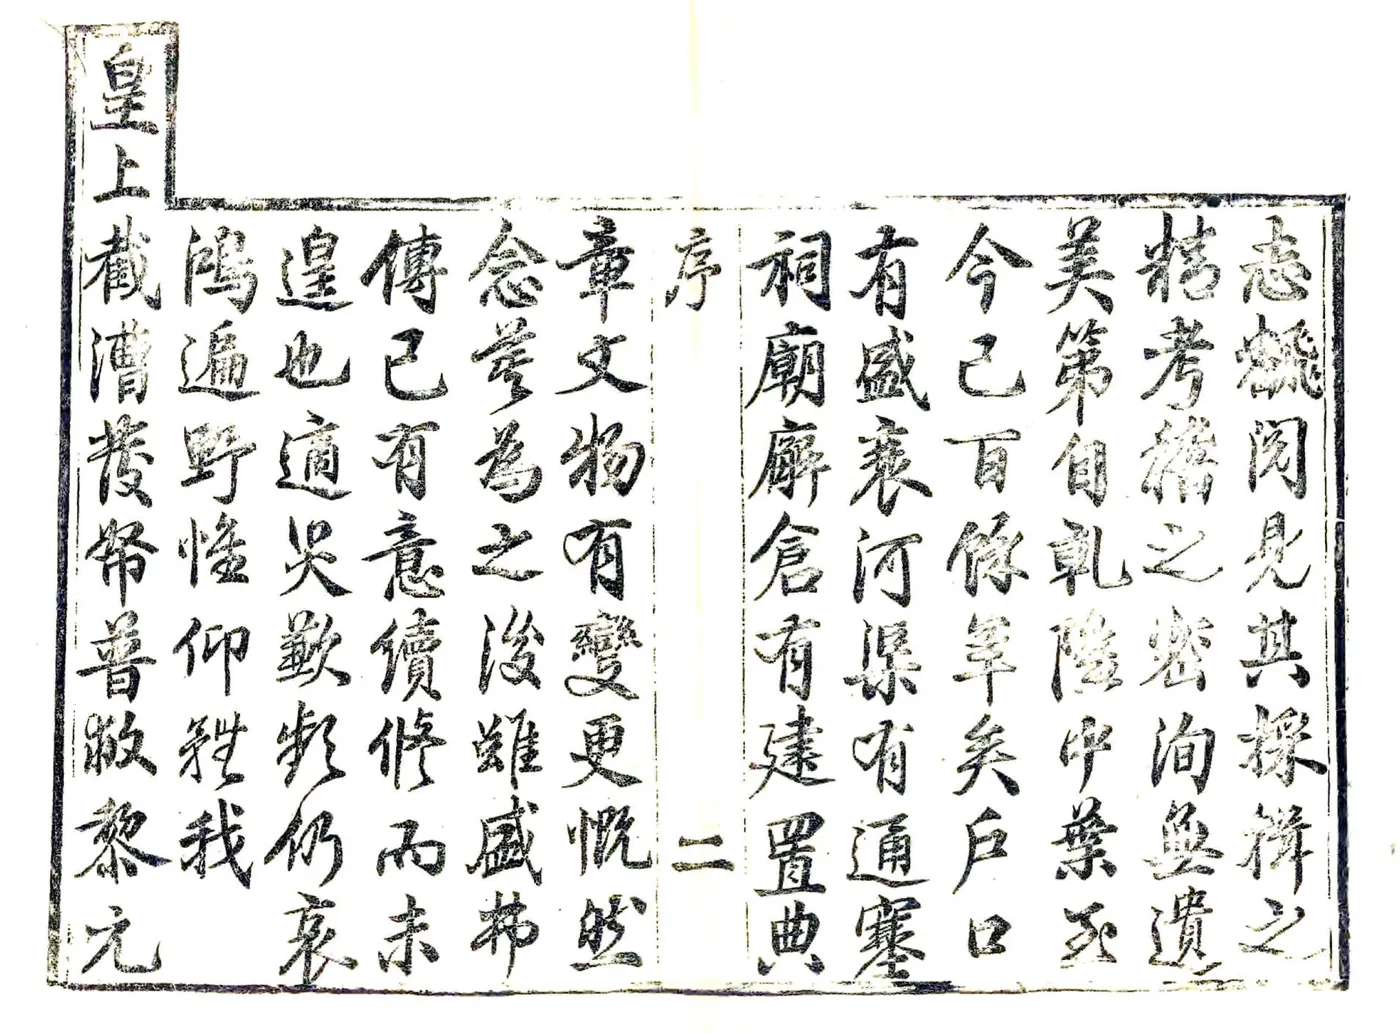 志繙閱見其採輯之
精考稽之密洵無遺
美第自乾隆中葉至
今已百餘年矣戶口
有盛衰河渠有通塞
祠廟廨倉有建置典
序 二
章文物有變更慨然
念莫為之後雖盛弗
傳已有意續修而未
遑也適災歉頻仍哀
鴻遍野惟仰我
皇上截漕發帑普救黎元